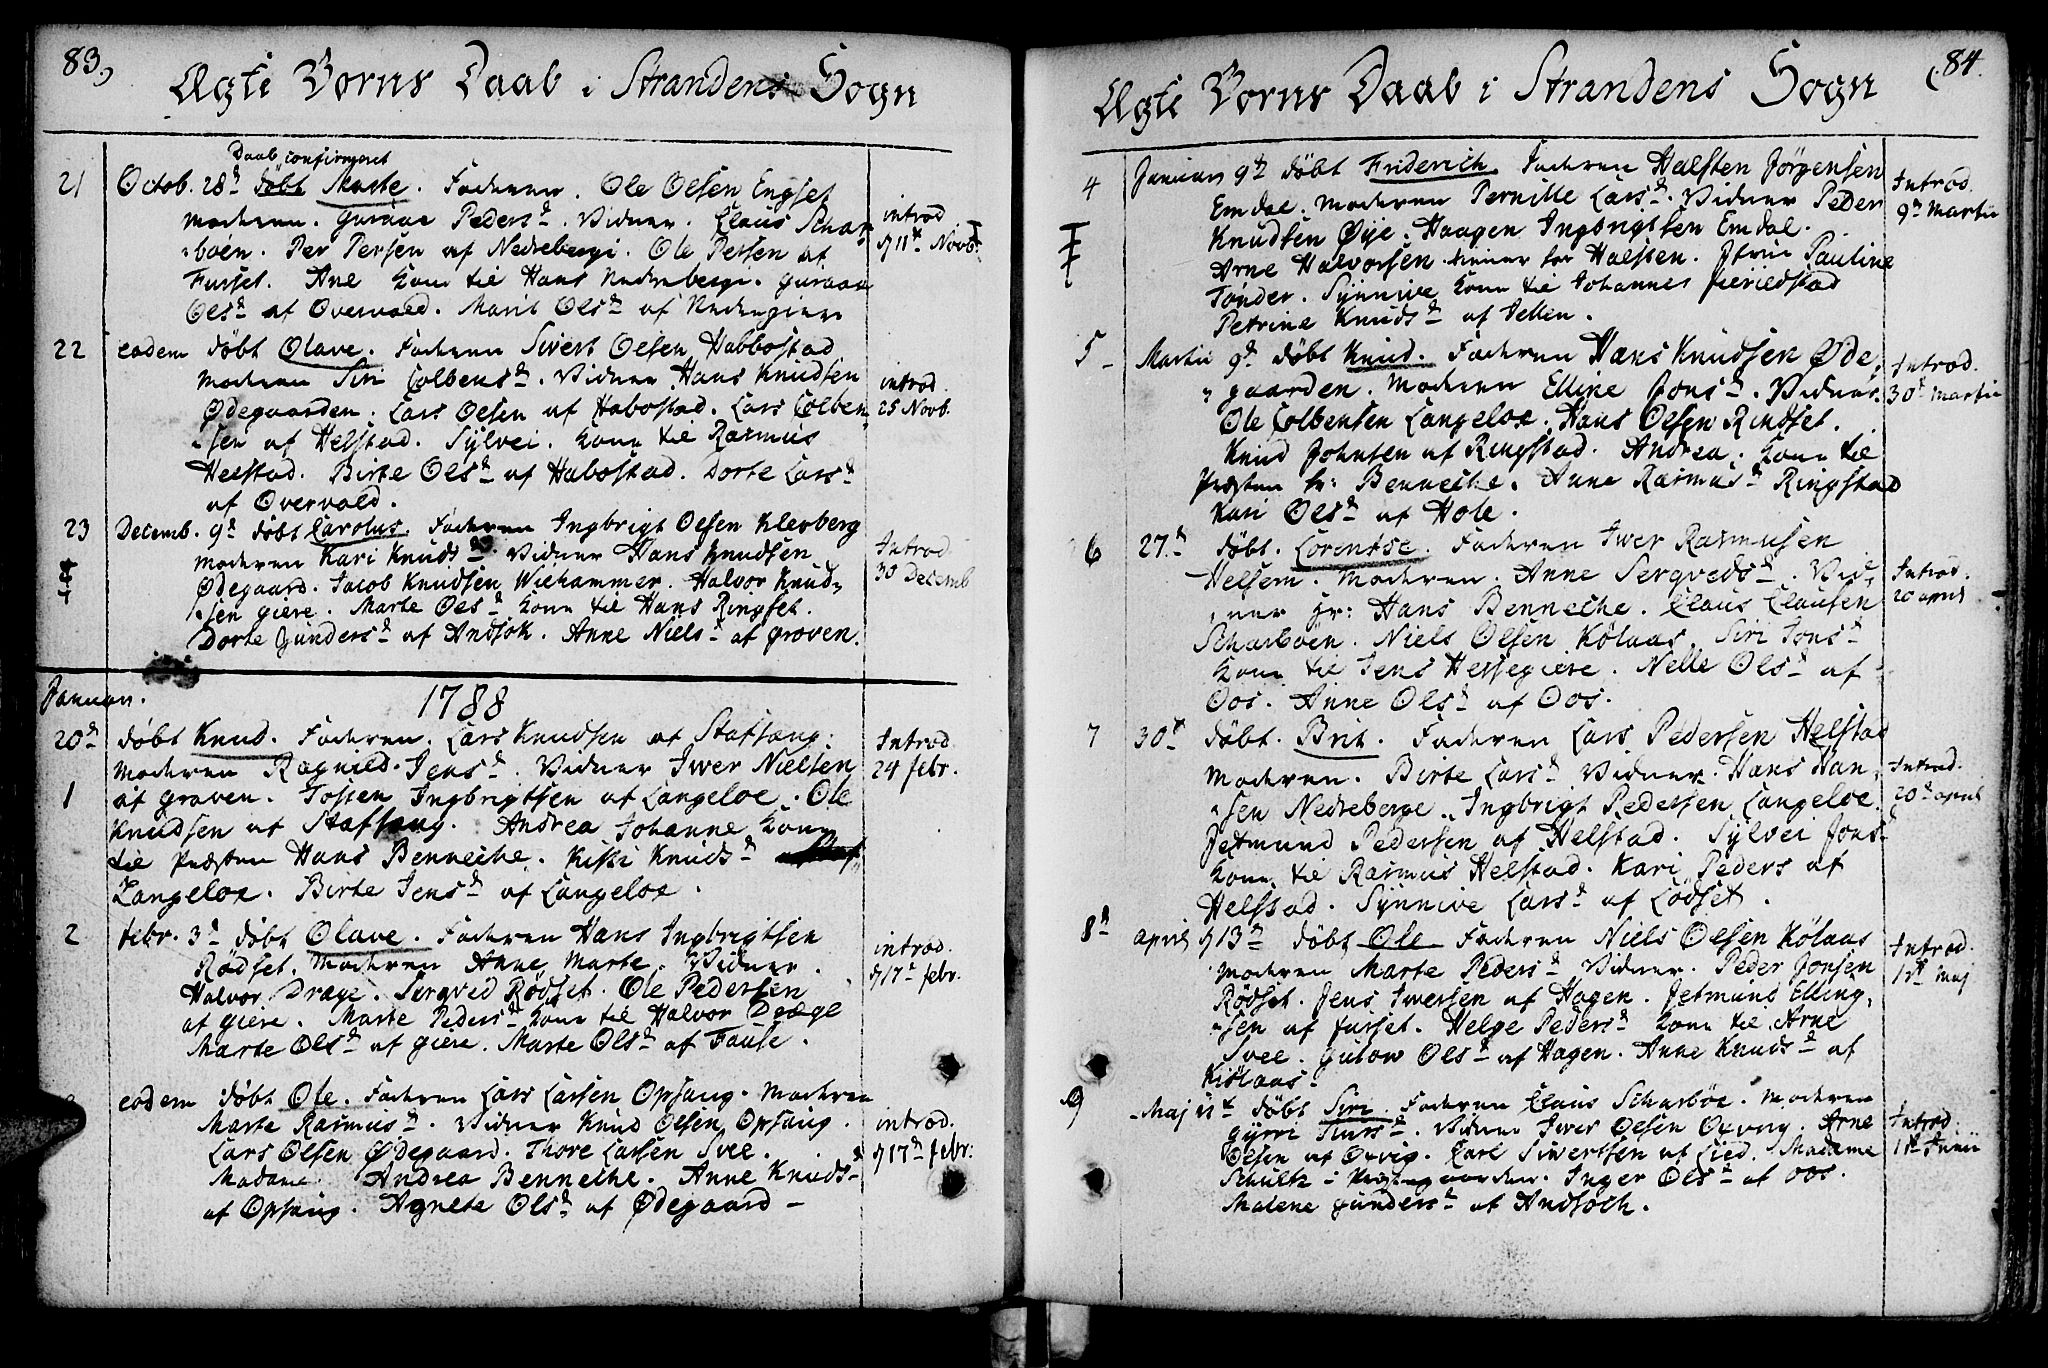 83.
Ægte Børns Daab i Strandens Sogn
Daab confirmeret
21 Octob. 28d døbt Marte. Faderen. Ole Olsen Engset
moderen. Guraae Pedersd. Vidner. Claus Schar-
boen. Per Persen af Nedrebergi. Ole Persen af
Furset. Ane kone til Hans Nedrebergi. Guraae
Olsd af Overvold. Marit Olsd af Nedregiere
introd
d 11t Novb.
22 eodem døbt Olave. Faderen Siwert Olsen Habbostad
moderen Siri Colbensd. Vidner Hans Knudsen
Ødegaarden. Lars Olsen af Habostad. Lars Colben-
sen af Helstad. Sylvei. kone til Rasmus
Helstad. Birte Olsd af Habostad. Dorte Larsd
af Overvold.
introd.
25 Novb.
23 Decemb. 9d døbt Carolus. Faderen Ingbrigt Olsen Klevberg
moderen Kari Knudsd. Vidner Hans Knudsen
Ødegaard. Jacob Knudsen Wiehammer. Halvor Knud-
sen giere. Marte Olsd kone til Hans Ringset.
Dorte Gundersd af Andsok. Anne Nielsd af groven.
Introd
30 Decemb
Januari. 1788
20d døbt Knud. Faderen. Lars Knudsen af Stafsæng.
moderen Ragnild Jensd. Vidner Iwer Nielsen
1 af graven. Tosten Ingbrigtsen af Langeloe. Ole
Knudsen af Stafsæng. Andrea Johanne kone
til Præsten Hans Benneche. Kisti Knudsd
Langeloe. Birte Jensd af Langeloe.
Introd.
24 febr.
2 febr. 3d døbt Olave. Faderen Hans Ingbrigtsen
Rødset. Moderen Anne Marte. Vidner.
Halvor Drage. Sergved Rødset. Ole Pedersen
af giere. Marte Pedersd kone til Halvor Drage
Marte Olsd af giere. Marte Olsd af Fause.
introd.
d 17d febr.
eodem døbt Ole. Faderen Lars Larsen Opsang. Moderen
Marte Rasmusd. Vidner Knud Olsen Opsang.
Lars Olsen Ødegaard. Thore Larsen Svee.
Madame Andrea Benneche. Anne Knudsd
af Opsang. Agnete Olsd af Ødegaard –
introd.
d 17d febr:
84.
Ægte Børns Daab i Strandens Sogn
4 Januari 9d døbt Friderich. Faderen Halsten Jørgensen
Emdal. moderen Pernille Larsd. Vidner Peder
Knudsen Øye. Haagen Ingbrigtsen Emdal.
Arne Halvorsen tiener hos Halsten. Jfrue Pauline
Tønder. Synnive kone til Johannes
Petrine Knudsd af Vellen.
Introd.
9d Martii
5 Martii 9d døbt Knud. Faderen Hans Knudsen Øde-
gaarden. Moderen Elline Jonsd. Vidner.
Ole Colbensen Langeloe. Hans Olsen Rindset.
Knud Johnsen af Ringstad. Andrea kone til
Præsten hr: Benneche. Anne Rasmusd Ringstad
Kari Olsd af Hole.
Introd.
30t Martii
6 27d døbt. Lorentse. Faderen Iwer Rasmusen
Helsem. Moderen. Anne Sergvedsd. Vid-
ner Hr: Hans Benneche. Claus Clausen
Scharboen. Niels Olsen Kølaas. Siri Jonsd
kone til Jens Hessegiere. Nelle Olsd af
Oos. Anne Olsd af Oos.
Introd.
20 april
7 30t døbt. Brit. Faderen Lars Pedersen Helstad
Moderen. Birte Larsd Vidner. Hans Han-
sen Nedreberge. Ingbrigt Pedersen Langeloe.
Jetmund Pedersen af Helstad. Sylvei Jonsd
kone til Rasmus Helstad. Kari Peders af
Helstad. Synnive Larsd af Lødset.
Introd.
20d april
8d april d 13d døbt Ole Faderen Niels Olsen Kølaas
Moderen Marte Pedersd Vidner. Peder Jonsen
Rødset. Jens Iwersen af Hagen. Jetmund Elling-
sen af furset. Helge Pedersd kone til Arne
Svee. Gulow Olsd af Hagen. Anne Knudsd af
Kiølaas.
Introd.
12t Maj
9 Maj 12t døbt Siri. Faderen Claus Scharbøe. Moderen
Gyrri Siursd. Vidner Iwer Olsen Oxvig. Arne
Olsen af Oxvig. Carl Siwertsen af Lied. Madame
Schultz i Præstegaarden. Inger Olsd af Oos.
Malene Gundersd af Andsoch.
Introd.
1d Junii